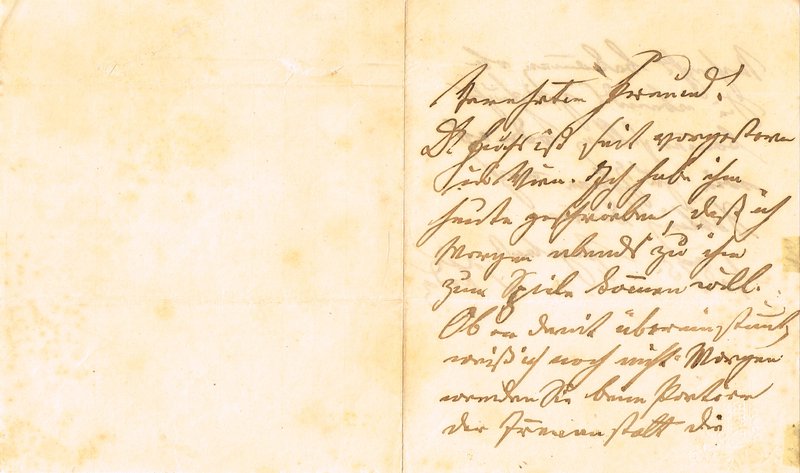 Verehrter Freund!
Dr. Fuchs ist seit vorgestern
in Wien. Ich habe ihm
heute geschrieben, daß ich
Morgen abends zu ihm
zum Spiele kommen will.
Ob er damit übereinstimmt,
weiß ich noch nicht. Morgen
werden Sie beim Portier
der Irrenanstalt die